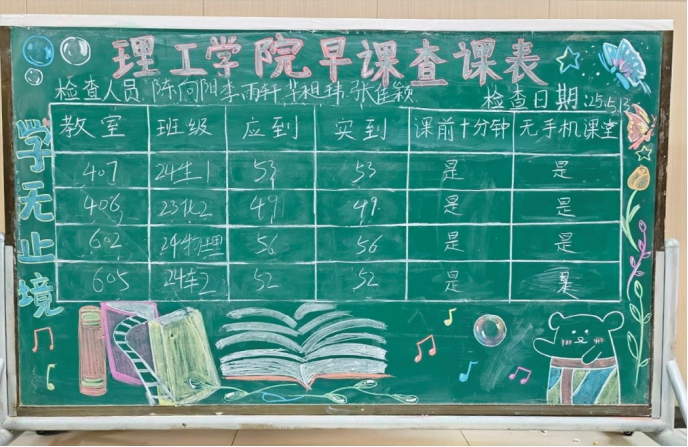 理工学院早课查课表
检查人员:陈向阳李雨轩 祖玮 张佳颖
检查日期:25.5.13
学无止境
教室 班级 应到 实到 课前十分钟 无手机课堂
407 24生1 53 53 是 是
406 23化2 49 49 是 是
602 24物理 56 56 是 是
605 24车2 52 52 是 是